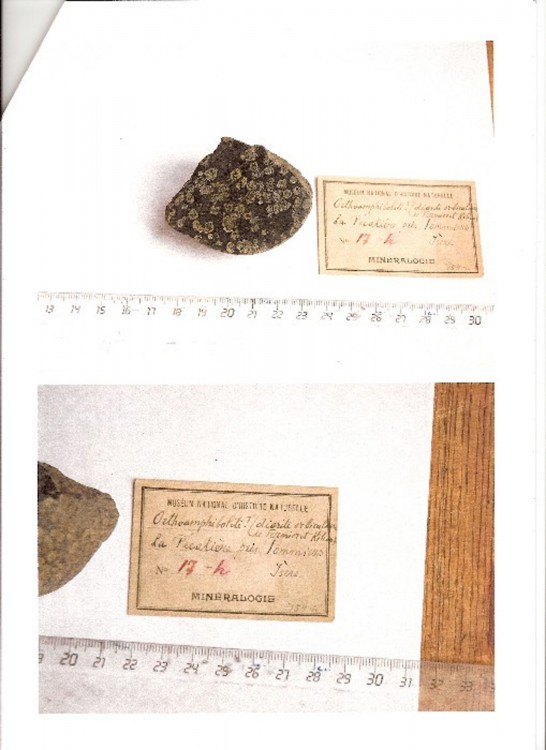 MUSEUM NATIONAL D'HISTOIRE NATURELLE
Orthoamphibolite? (diorite orbiculaire
de
La près
No 17-h Isère
MINERALOGIE
13 14 15 16 17 18 19 20 21 22 23 24 25 26 27 28 29 30
MUSÉUM NATIONAL D'HISTOIRE NATURELLE
Orthoamphibolite? (diorite orbiculaire
de
La près
No 17-h Isère
MINÉRALOGIE
20 21 22 23 24 25 26 27 28 29 30 31 32 33